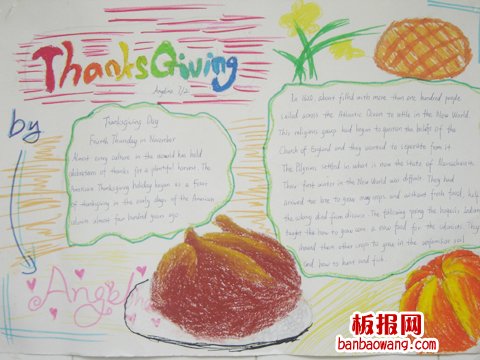 ThanksGiving
Angelina
by
Thanksgiving Day
Fourth Thursday in November
Almost every culture in the world has held
celebrations of thanks for a plentiful harvest. The
American Thanksgiving holiday began as a feast
of thanksgiving in the early days of the American
colonies almost four hundred years ago
In 1620, a boat filled with more than one hundred people
sailed across the Atlantic Ocean to settle in the New World.
This religious group had begun to question the beliefs of the
Church of England and they wanted to separate from it.
The Pilgrims settled in what is now the state of Massachusetts.
Their first winter in the New World was difficult. They had
arrived too late to grow many crops, and without fresh food, half
the colony died from disease. The following spring the Iroquois Indians
taught them how to grow corn, a new food for the colonists. They
showed them other crops to grow in the unfamiliar soil
and how to hunt and fish.
板报网
banbaowang.com